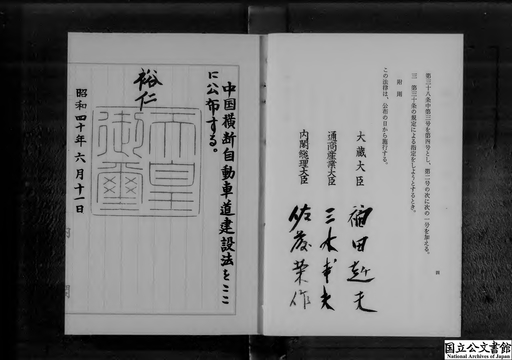 第三十八条中第三号を第四号とし、第二号の次に次の一号を加える。
三 第三十条の規定による指定をしようとするとき。
附則
この法律は、公布の日から施行する。
大蔵大臣
福田赳夫
通商産業大臣
三木武夫
内閣総理大臣
佐藤榮作
四
中国横断自動車道建設法をここ
に公布する。
裕仁
天皇
御璽
昭和四十年六月十一日
国立公文書館
National Archives of Japan